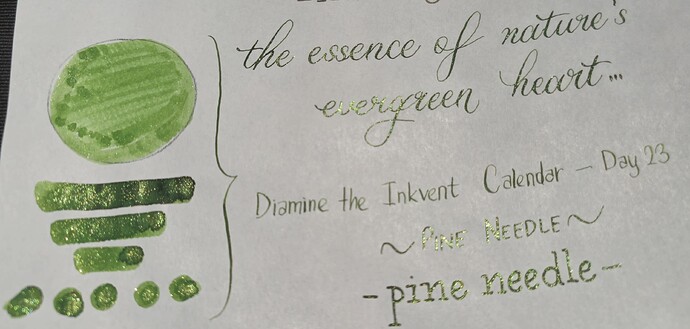 the essence of nature's
evergreen heart...
Diamine the Inkvent Calendar — Day 23
~ PINE NEEDLE ~
- pine needle -